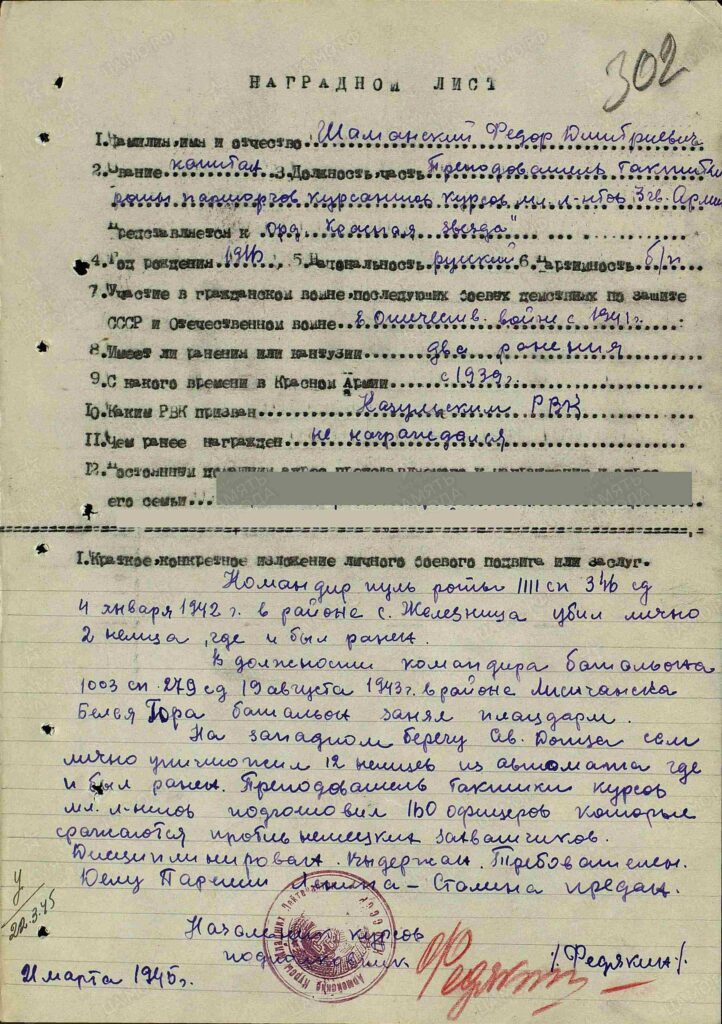 302
НАГРАДНОЙ ЛИСТ
1.Фамилия,имя и отчество...Шаманский Федор Дмитриевич
2.Звание капитан 3.Должность,часть Преподаватель тактики
роты парторгов курсантов курсов мл. л-нтов 3 гв. Армии
Представляется к орд. "Красная звезда"
4.Год рождения 1916, 5.Национальность русский 6.Партийность б/п
7.Участие в гражданской войне,последующих боевых действиях по защите
СССР и Отечественной войне.. В Отечествен. войне с 1941 г. :
8.Имеет ли ранения или кантузии.....два ранения
9.С какого времени в Красной Армии.....с 1939 г.
10.Каким РВК призван.....РВК
11.Чем ранее награжден...не награждался
12.Постоянный домашний адрес представляемого к награждению и адрес
его семьи...
1.Краткое,конкретное изложение личного боевого подвига или заслуг.
Командир пуль роты 1111 сп 316 сд
4 января 1942 г. в районе с. Железница убил лично
2 немца, где и был ранен.
В должности командира батальона
1003 сп 279 сд 19 августа 1943 г. в районе Лисичанска
Белья Гора батальон занял плацдарм.
На западном берегу Св. Донца сам
лично уничтожил 12 немцев из автомата где
и был ранен. Преподаватель тактики курсов
мл. л-нтов подготовил 160 офицеров которые
сражаются против немецких захватчиков.
Дисциплинирован. Выдержан. Требователен.
Делу Партии Ленина – Сталина предан.
Начальник курсов
подполковник
/Федякин/.
21 марта 1945 г.
22.3.45